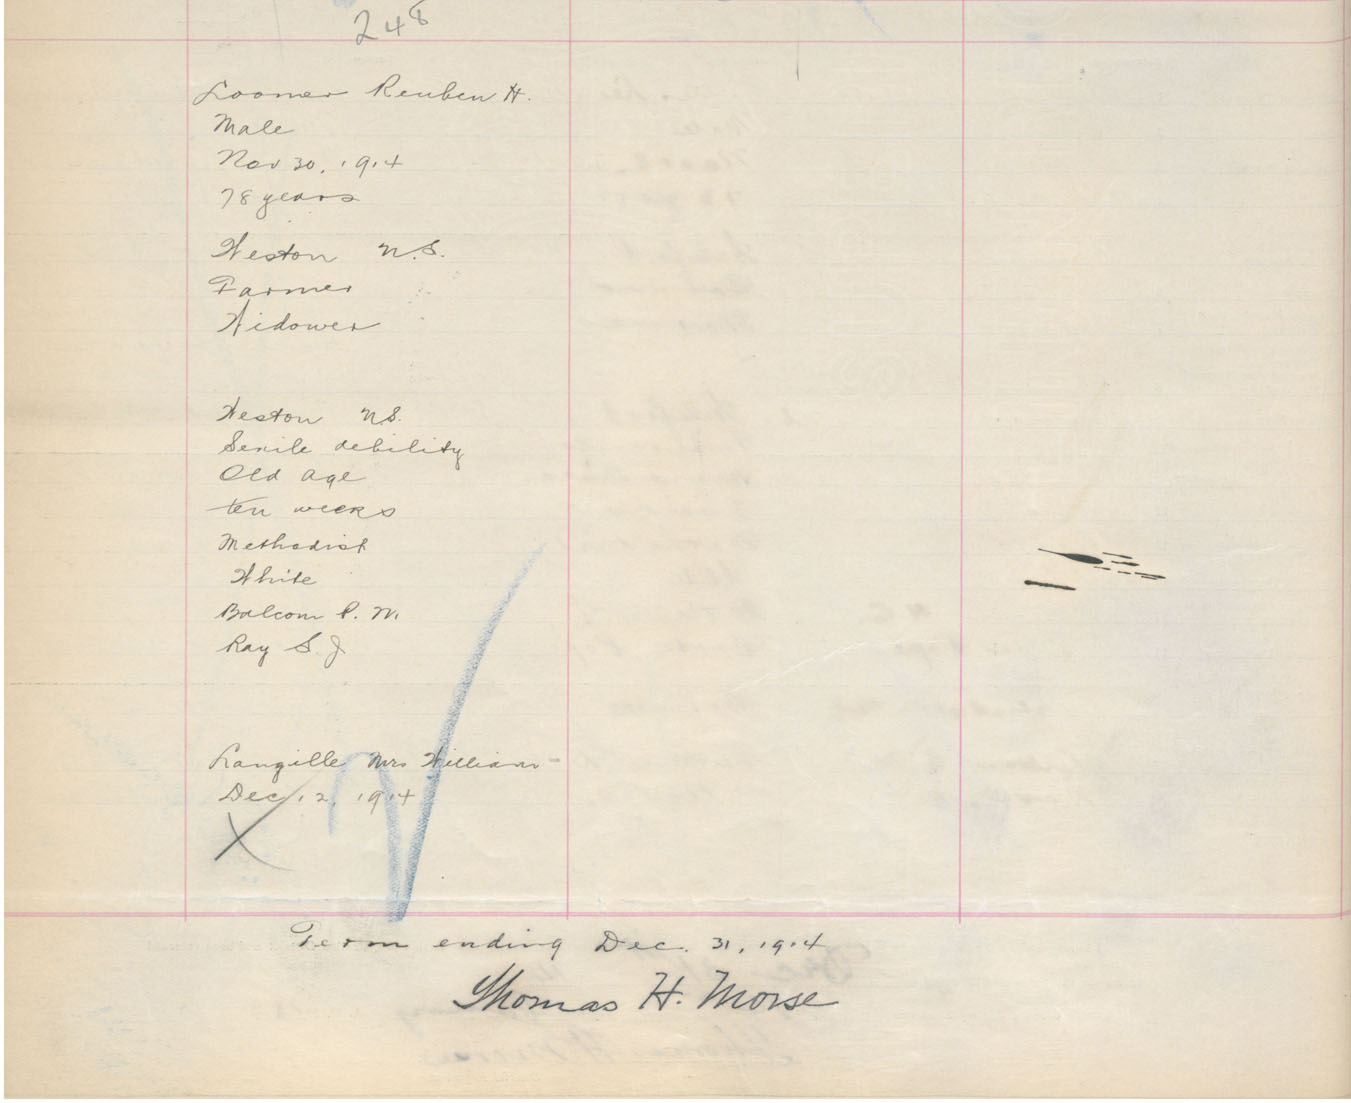 248
Loomer Reuben H.
Male
Nov 30, 1914
78 years
Weston N.S.
Farmer
Widower
Weston N.S.
Senile debility
Old age
ten weeks
Methodist
White
Balcom P. N.
Ray S. J
Langille Mrs William
Dec 12, 1914
X
Term ending Dec. 31, 1914
Thomas H. Morse